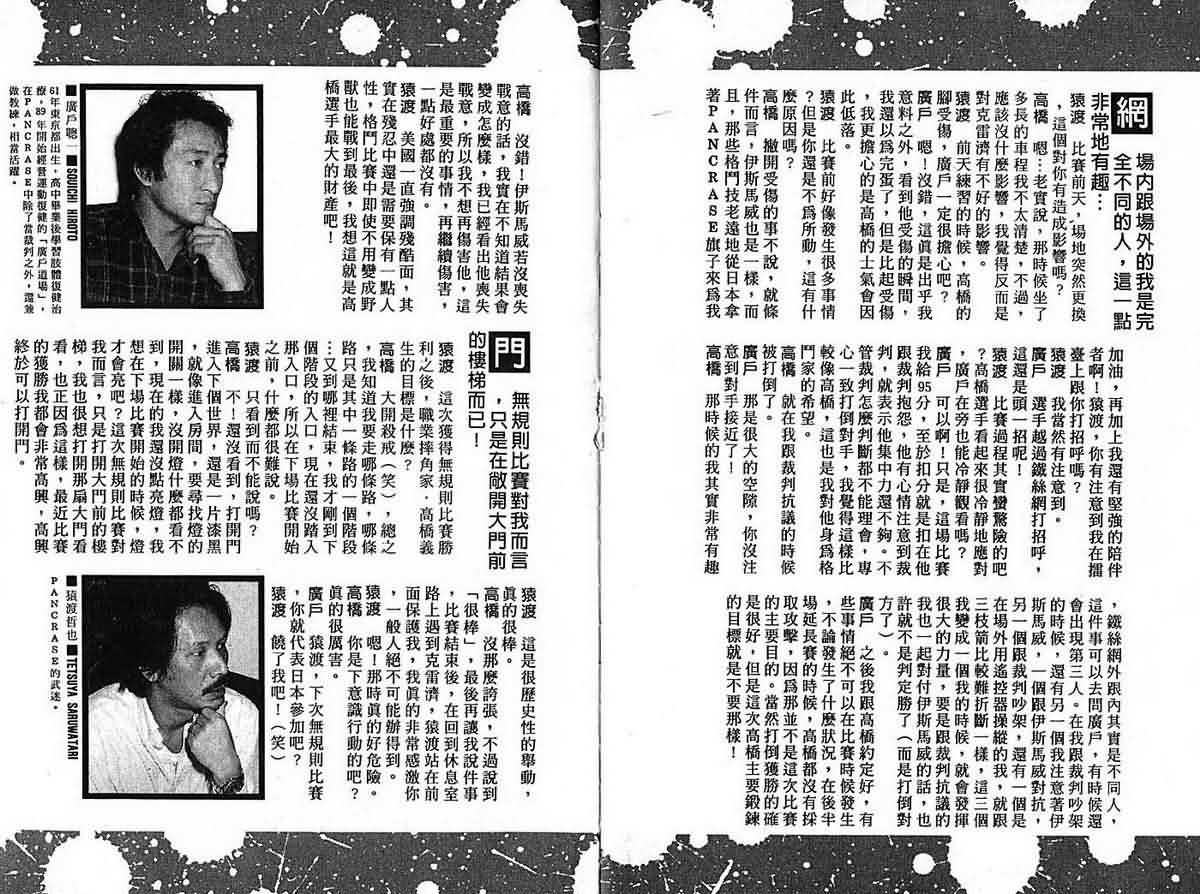 網
場内跟場外的我是完
全不同的人，這一點
非常地有趣…
猿渡　比賽前天，場地突然更換
，這個對你有造成影響嗎？
高橋　嗯…老實說，那時候坐了
多長的車程我不太清楚，不過，
應該沒什麼影響，我覺得反而是
對克雷濟有不好的影響。
猿渡　前天練習的時候，高橋的
腳受傷，廣戶一定很擔心吧？
廣戶　嗯！沒錯，這眞是出乎我
意料之外，看到他受傷的瞬間，
我還以爲完蛋了，但是比起受傷
，我更擔心的是高橋的士氣會因
此低落。
猿渡　比賽前好像發生很多事情
？但是你還是不爲所動，這有什
麼原因嗎？
高橋　撇開受傷的事不說，就條
件而言，伊斯馬威也是一樣，而
且，那些格鬥技老遠地從日本拿
著PANCRASE旗子來爲我
加油，再加上我還有堅強的陪伴
者啊！猿渡，你有注意到我在擂
臺上跟你打招呼嗎？
猿渡　我當然有注意到。
廣戶　選手越過鐵絲網打招呼，
這還是頭一招呢！
猿渡　比賽過程其實蠻驚險的吧
？高橋選手看起來很冷靜地應對
，廣戶在旁也能冷靜觀看嗎？
廣戶　可以啊！只是，這場比賽
我給95分，至於扣分就是扣在他
跟裁判抱怨，他有心情注意到裁
判，就表示他集中力還不夠。不
管裁判怎麼判斷都不能理會，專
心一致打倒對手，我覺得這樣比
較像高橋，這也是我對他身爲格
鬥家的希望。
高橋　就在我跟裁判抗議的時候
被打倒了。
廣戶　那是很大的空隙，你沒注
意到對手接近了！
高橋　那時候的我其實非常有趣
，鐵絲網外跟內其實是不同人，
這件事可以去問廣戶，有時候還
會出現第三人。在我跟裁判吵架
的時候，還有另一個我注意著伊
斯馬威，一個跟伊斯馬威對抗，
另一個跟裁判吵架，還有一個是
在場外用遙控器操縱的我，就跟
三枝箭比較難折斷一樣，這三個
我變成一個我的時候，就會發揮
很大的力量，要是跟裁判抗議的
我也一起對付伊斯馬威的話，也
許就不是判定勝了（而是打倒對
方了）。
廣戶　之後我跟高橋約定好，有
些事情絕不可以在比賽時候發生
，不論發生了什麼狀況，在後半
場延長賽的時候，高橋都沒有採
取攻擊，因爲那並不是這次比賽
的主要目的。當然打倒獲勝的確
是很好，但是這次高橋主要鍛鍊
的目標就是不要那樣！
高橋　沒錯！伊斯馬威若沒喪失
戰意的話，我實在不知道結果會
變成怎麼樣，我已經看出他喪失
戰意，所以我不想再傷害他，這
是最重要的事情，再繼續傷害，
一點好處都沒有。
猿渡　美國一直強調殘酷面，其
實在殘忍中還是需要保有一點人
性，格鬥比賽中即使不用變成野
獸也能戰到最後，我想這就是高
橋選手最大的財產吧！
■廣戶聰一■SOUICHI HIROTO
61年東京都出生。高中畢業後學習肢體復健治
療，89年開始經營運動復健的「廣戶道場」，
在PANCRASE中除了當裁判之外，還兼
做教練，相當活躍。
門
無規則比賽對我而言
，只是在敞開大門前
的樓梯而已！
猿渡　這次獲得無規則比賽勝
利之後，職業摔角家．高橋義
生的目標是什麼？
高橋　大開殺戒（笑），總之
，我知道我要走哪條路，哪條
路只是其中一條路的一個階段
…又到哪裡結束，我才剛到下
個階段的入口，現在還沒踏入
那入口，所以在下場比賽開始
之前，什麼都很難說。
猿渡　只看到而不能說嗎？
高橋　不！還沒看到，打開門
進入下個世界，還是一片漆黑
，就像進入房間，要尋找燈的
開關一樣，沒開燈什麼都看不
到，現在的我還沒點亮燈，我
想在下場比賽開始的時候，燈
才會亮吧？這次無規則比賽對
我而言，只是打開大門前的樓
梯，我也很想打開那扇大門看
看，也正因爲這樣，最近比賽
的獲勝我都會非常高興，高興
終於可以打開門。
猿渡　這是很歷史性的舉動，
眞的很棒。
高橋　沒那麼誇張，不過說到
「很棒」，最後再讓我說件事
，比賽結束後，在回到休息室
路上遇到克雷濟，猿渡站在前
面保護我，我眞的非常感激你
，一般人絕不可能辦得到。
猿渡　嗯！那時眞的好危險。
高橋　你是下意識行動的吧？
眞的很厲害。
廣戶　猿渡，下次無規則比賽
，你就代表日本參加吧？
猿渡　饒了我吧！（笑）
■猿渡哲也■TETSUYA SARUWATARI
PANCRASE的武迷。